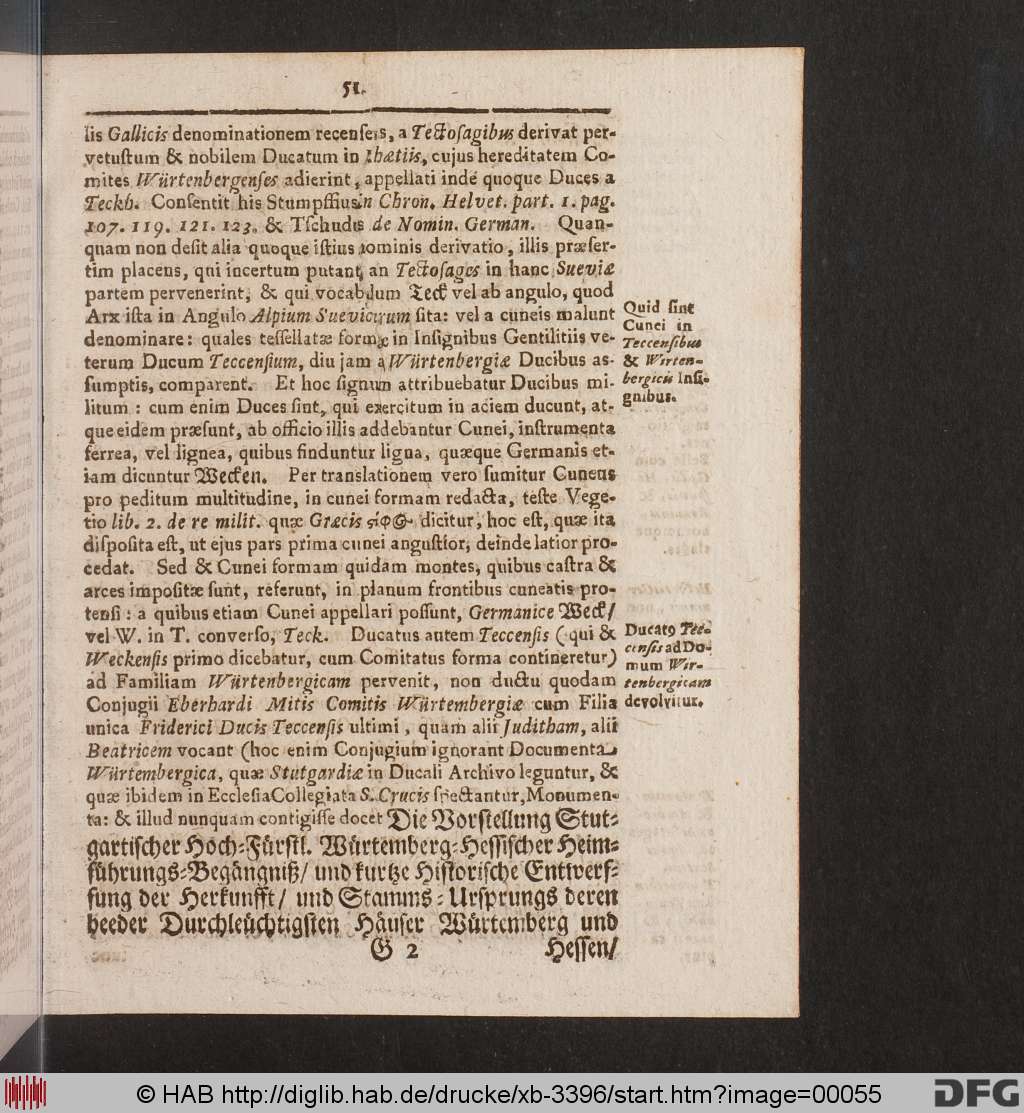 51.
lis Gallicis denominationem recenſens, a Tectoſagibus derivat per-
vetuſtum & nobilem Ducatum in Rhætiis, cujus hereditatem Co-
mites Würtenbergenſes adierint, appellati indé quoque Duces a
Teckh. Conſentit his Stumpffius in Chron. Helvet. part. 1. pag.
107. 119. 121. 123. & Tſchudis de Nomin. German. Quan-
quam non deſit alia quoque iſtius nominis derivatio, illis præſer-
tim placens, qui incertum putant, an Tectoſages in hanc Sueviæ
partem pervenerint, & qui vocabulum Teck vel ab angulo, quod
Arx iſta in Angulo Alpium Suevicarum ſita: vel a cuneis malunt
denominare: quales teſſellatæ formæ in Inſignibus Gentilitiis ve-
terum Ducum Teccenſium, diu jam a Würtenbergiæ Ducibus as-
ſumptis, comparent. Et hoc ſignum attribuebatur Ducibus mi-
litum: cum enim Duces ſint, qui exercitum in aciem ducunt, at-
que eidem præſunt, ab officio illis addebantur Cunei, inſtrumenta
ferrea, vel lignea, quibus finduntur ligna, quæque Germanis et-
iam dicuntur Wecken. Per translationem vero ſumitur Cuneus
pro peditum multitudine, in cunei formam redacta, teſte Vege-
tio lib. 2. de re milit. quæ Græcis dicitur, hoc eſt, quæ ita
diſpoſita eſt, ut ejus pars prima cunei anguſtior, deinde latior pro-
cedat. Sed & Cunei formam quidam montes, quibus caſtra &
arces impoſitæ ſunt, referunt, in planum frontibus cuneatis pro-
tenſi: a quibus etiam Cunei appellari poſſunt, Germanice Weck/
vel W. in T. converſo, Teck. Ducatus autem Teccenſis (qui &
Weckenſis primo dicebatur, cum Comitatus forma contineretur)
ad Familiam Würtenbergicam pervenit, non ductu quodam
Conjugii Eberhardi Mitis Comitis Würtembergiæ cum Filia
unica Friderici Ducis Teccenſis ultimi, quam alii Juditham, alii
Beatricem vocant (hoc enim Conjugium ignorant Documenta
Würtembergica, quæ Stutgardiæ in Ducali Archivo leguntur, &
quæ ibidem in Eccleſia Collegiata S. Crucis ſpectantur, Monumen-
ta: & illud nunquam contigiſſe docet Die Vorſtellung Stut-
gartiſcher Hoch-Fürſtl. Würtemberg-Heſſiſcher Heim-
führungs-Begängniß/ und kurtze Hiſtoriſche Entwerf-
fung der Herkunfft/ und Stamms-Urſprungs deren
beeder Durchleüchtigſten Häuſer Würtemberg und
G 2 Heſſen/
Quid ſint
Cunei in
Teccenſibus
& Wirten-
bergicis Inſi-
gnibus.
Ducatq Tec-
cenſis ad Do-
mum Wir-
tenbergicam
devolvitur.
© HAB http://diglib.hab.de/drucke/xb-3396/start.htm?image=00055
DFG